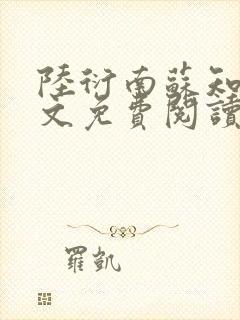 陸衍南蘇知
文免費閱讀
羅凱